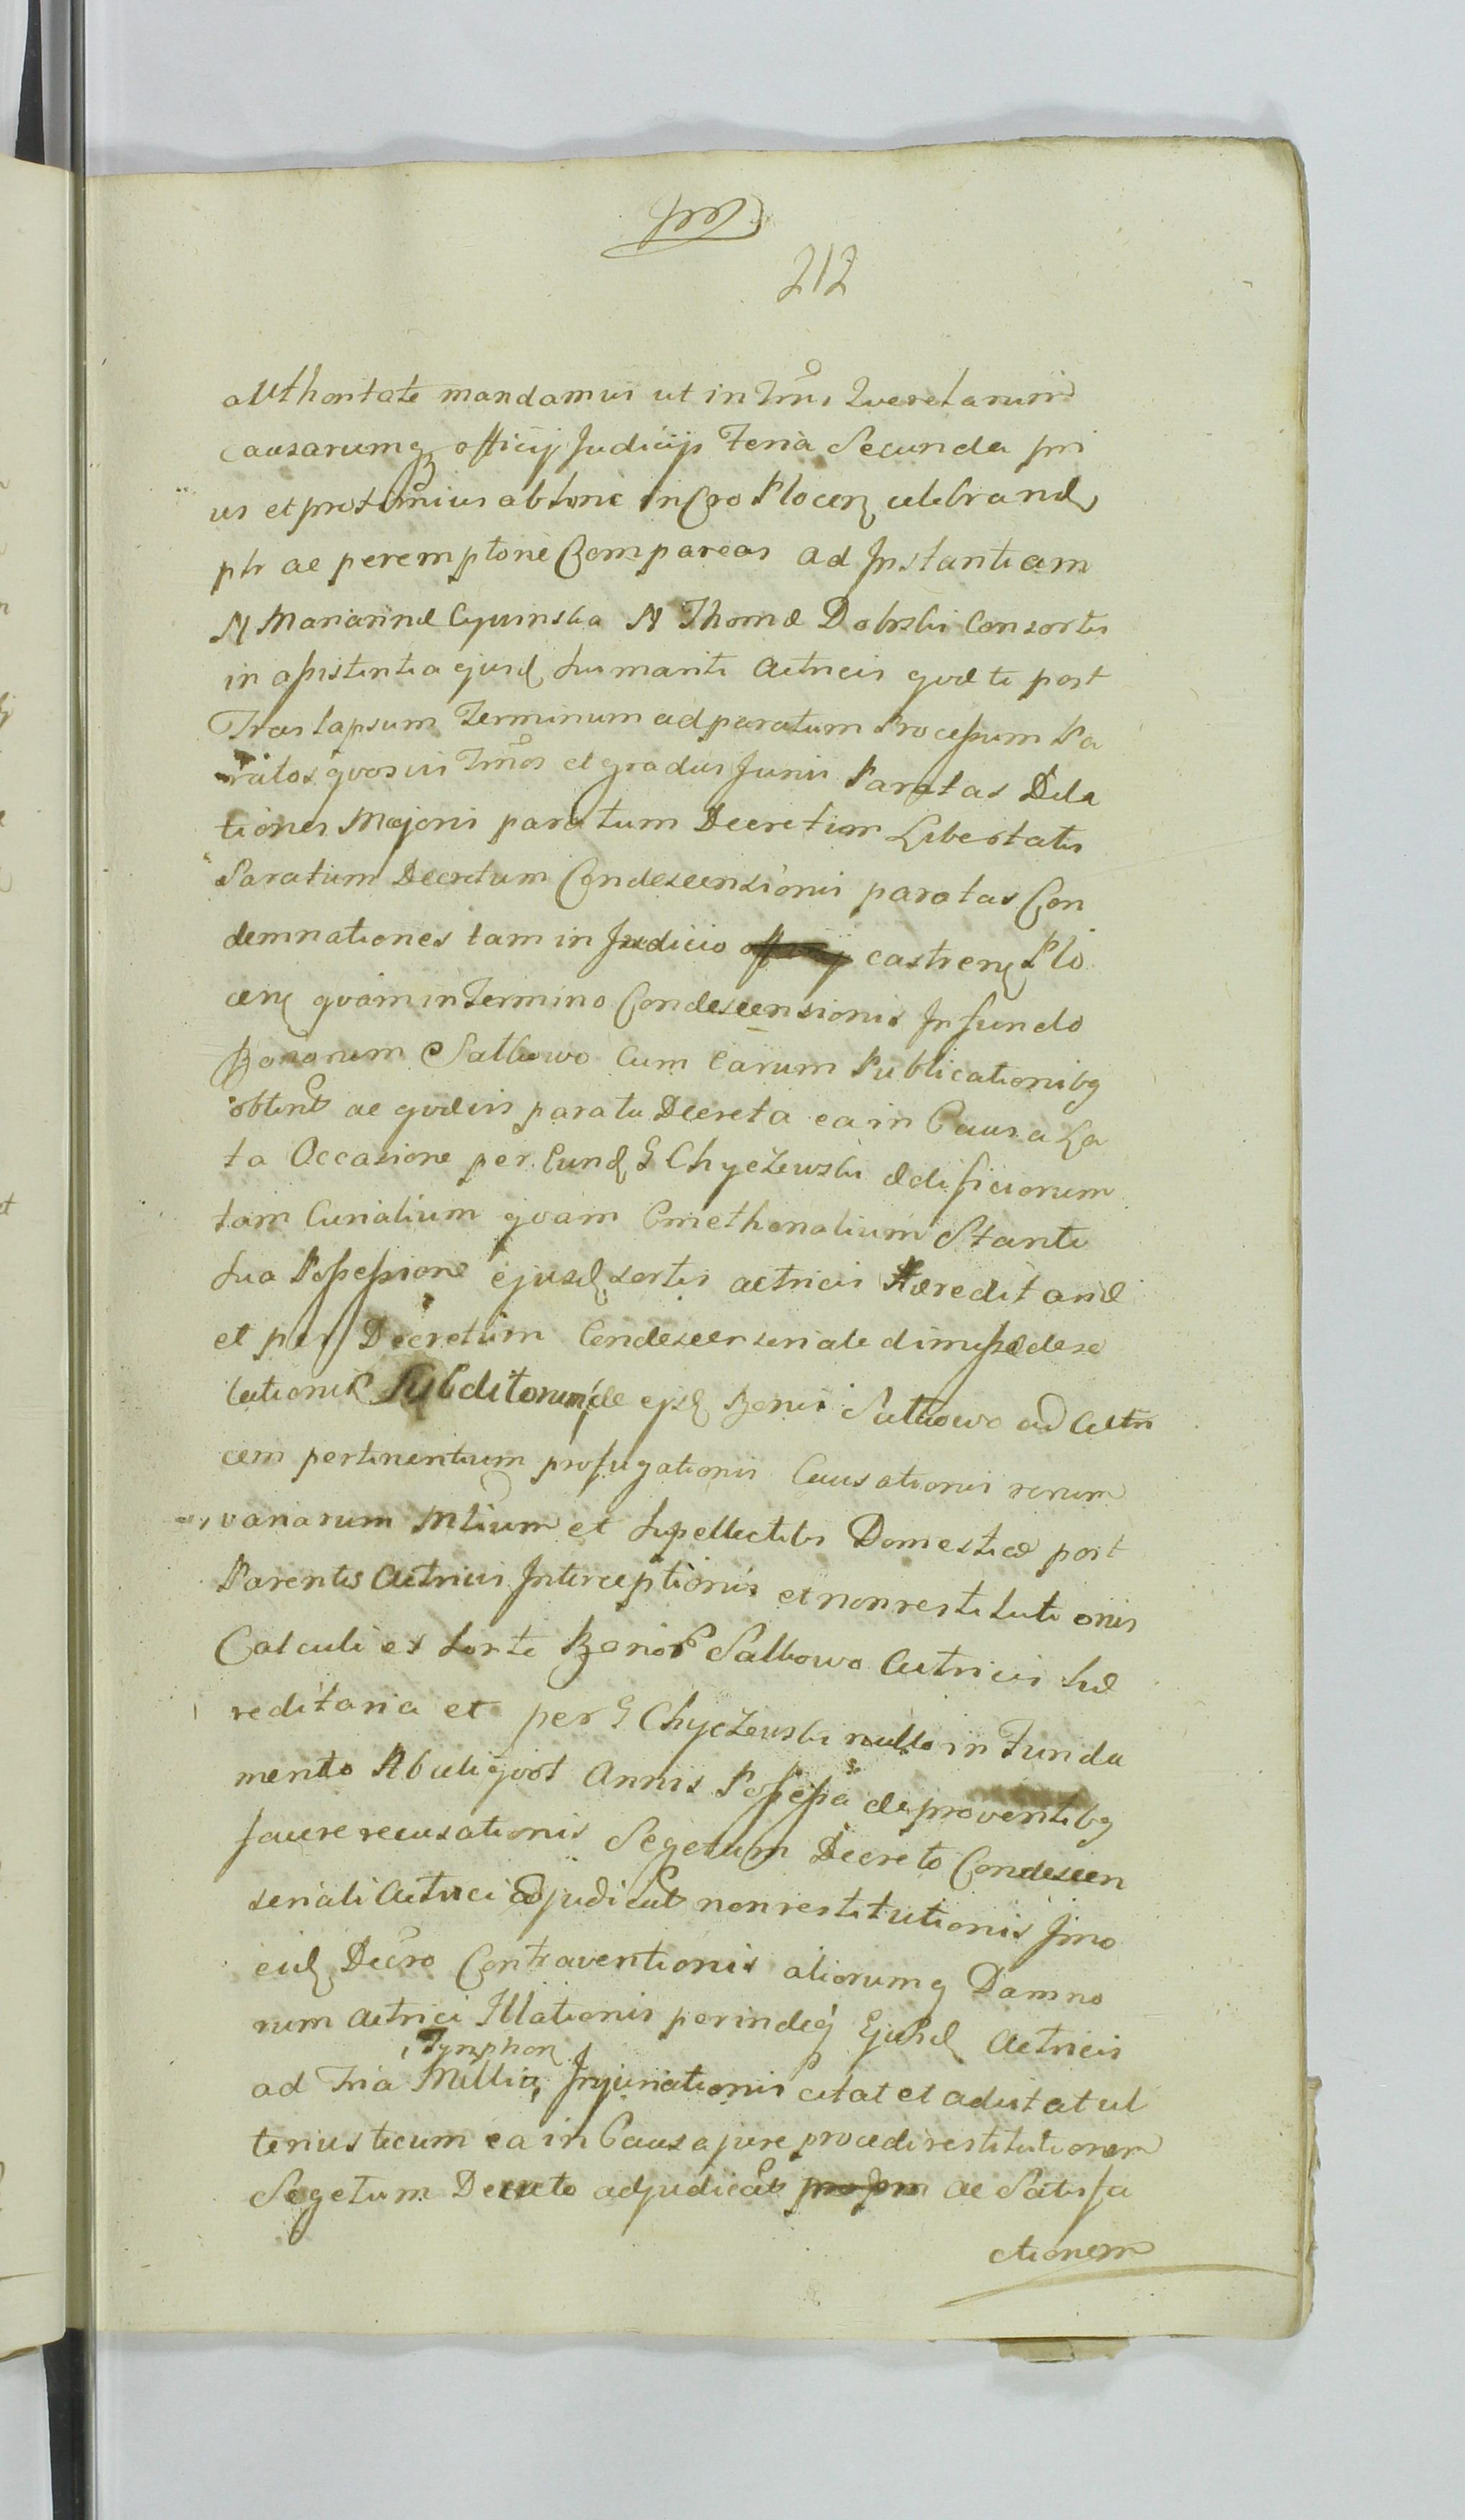 212
authoritate mandamus ut in Tmis Querelarum
causarumq officij Judicijs Feria Secunda pri
us et protunius ab hinc in Cro Plocen celebrand
ptr ac peremptorie Compareas ad Instantiam
N Mariannæ Cywinska N Thomæ Dobrski Consortis
in assistentia ejusd sui mariti Actricis quæ te post
Translapsum Terminum ad paratum Processum Pa
ratos quosvis Tmos et gradus Juris Paratas Dila
tiones Majoris paratum Decretum Libertatis
Paratum Decretum Condescensionis paratas Con
demnationes tam in Judicio castren Plo
cen quam in Termino Condescensionis In fundo
Bonorum Satkowo Cum earum Publicationibq
obtent ac quævis parata Decreta ea in Causa La
ta Occasione per Eund G Chyczewski ædificiorum
tam Curialium quam Cmethonalium Stante
sua Possessione ejusd sortis actricis Hæreditariæ
et per Decretum Condescensoriale dimissæ deso
lationis Subditorum de ejsd Bonis Satkowo ad Actri
cem pertinentium profugationis Causationis rerum
variarum Mlium et supellectilis Domesticæ post
Parentes Actricis Interceptionis et non restitutionis
Calculi ex sorte Bonor Satkowo Actricis hæ
reditaria et per G Chyczewski nullo in Funda
mento Ab aliquot Annis Possessa de proventibq
facere recusationis Segetum Decreto Condescen
soriali Actrici adjudicat non restitutionis Imo
eid Decro Contraventionis aliorumq Damno
rum Actrici Illationis perindeq Ejusd Actricis
Tynphon
ad Tria Millia Injuriationis citat et adcitat ul
terius tecum ea in Causa jure procedi restitutionem
Segetum Decreto adjudicat ac Satisfa
ctionem